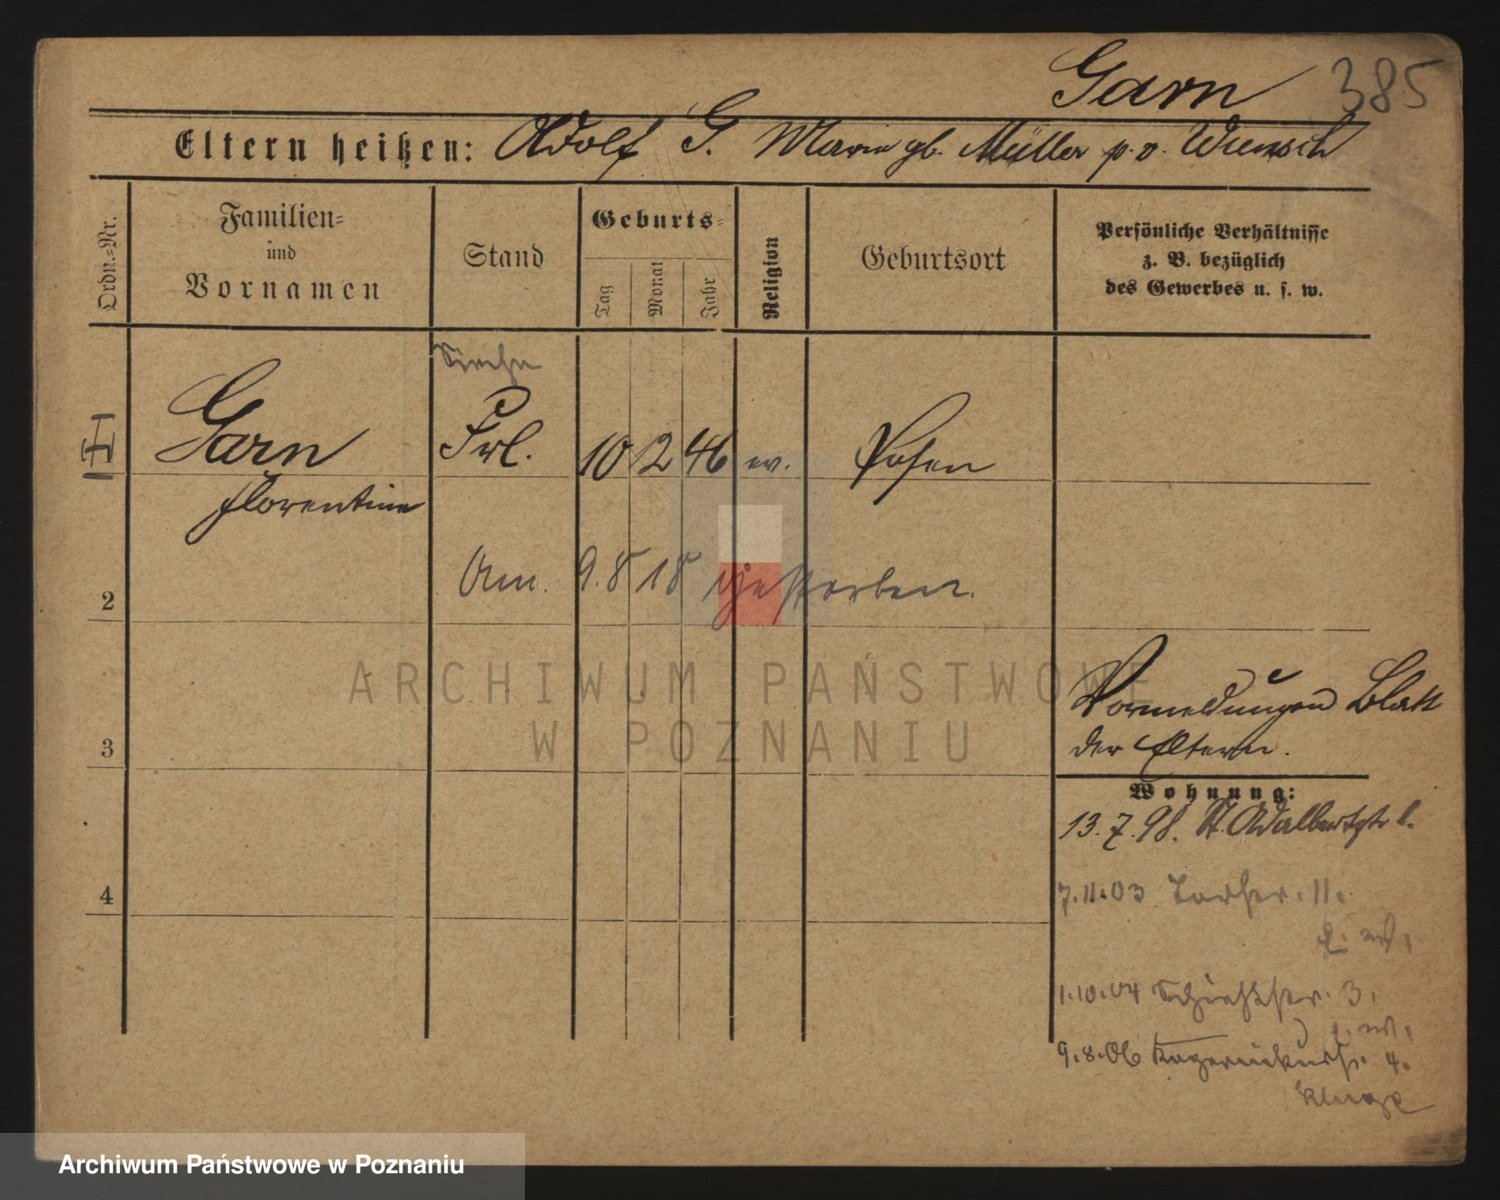 Garn 385
Eltern heißen: Adolf G. Marie gb. Müller p. v. Wunsch
Ordn.-Nr.
Familien-
und
Vornamen
Stand
Geburts-
Tag
Monat
Jahr
Religion
Geburtsort
Persönliche Verhältnisse
z. B. bezüglich
des Gewerbes u. s. w.
Garn Frl. 10 2 46 ev. Posen
Florentine
Am. 9. 8 18 gestorben.
2
ARCHIWUM PAŃSTWOWE
W POZNANIU
3
Vormeldungen Blatt
der Eltern.
Wohnung:
13. 7. 98. St. Adalbertstr 1.
4
7.11.03 11.
b. w.
1.10.04 3.
b. w.
9.8.06 4.
Kluge
Archiwum Państwowe w Poznaniu